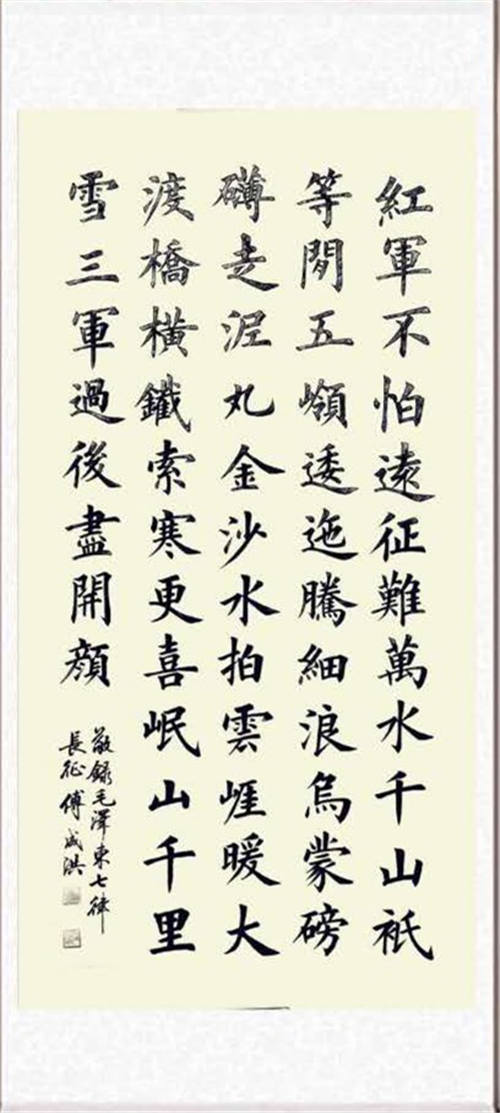 紅軍不怕遠征難萬水千山祇
等閒五嶺逶迤騰細浪烏蒙磅
礴走泥丸金沙水拍雲崕暖大
渡橋橫鐵索寒更喜岷山千里
雪三軍過後盡開顏
敬錄毛澤東七律
長征 傅成洪